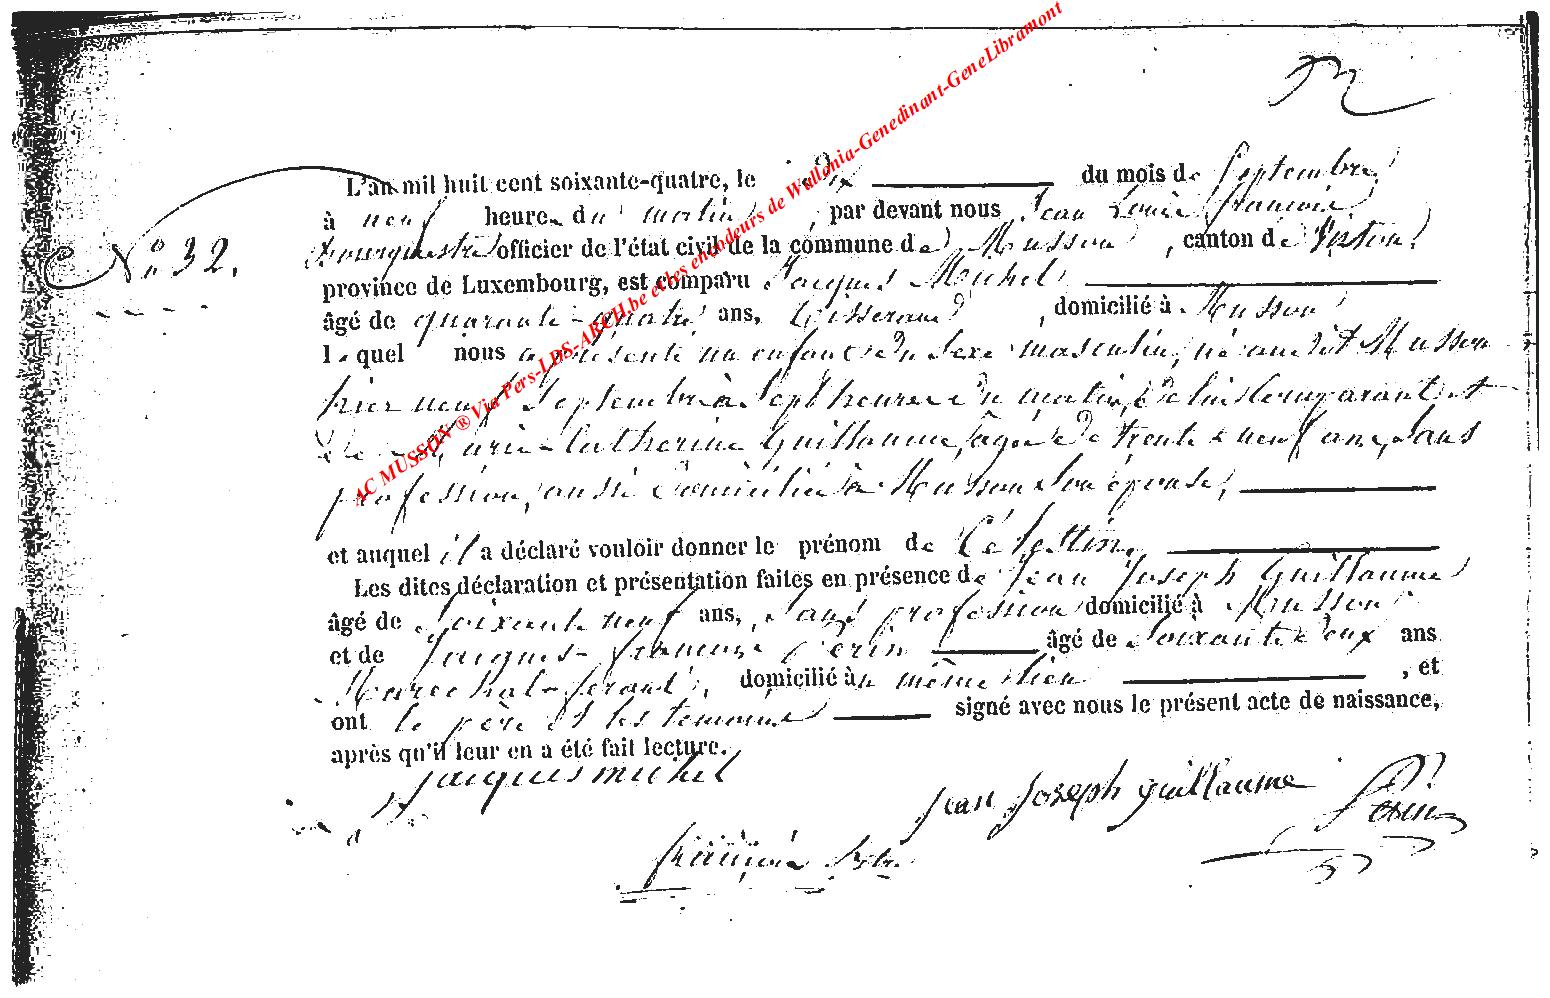 N° 32.
L'an mil huit cent soixante-quatre, le dix du mois de Septembre,
à neuf heures du matin, par devant nous Jean Louis François
officier de l'état civil de la commune de Musson, canton de Virton,
province de Luxembourg, est comparu Jacques Michel
âgé de quarante-quatre ans, tisserand, domicilié à Musson
lequel nous a présenté un enfant du sexe masculin, né audit Musson
hier neuf Septembre à Sept heures du matin, de lui comparant et
de Marie-Catherine Guillaume, agée de trente-neuf ans, sans
profession, aussi domiciliée à Musson son épouse,
et auquel il a déclaré vouloir donner le prénom de Célestin,
Les dites déclaration et présentation faites en présence de Jean Joseph Guillaume
âgé de soixante neuf ans, sans profession domicilié à Musson
et de Jacques-François Perin âgé de soixante deux ans
Maréchal-ferant, domicilié au même lieu, et
ont le père et les temoins signé avec nous le présent acte de naissance,
après qu'il leur en a été fait lecture.
Jacques michel
Jean Joseph guillaume
Perin
françois
AC MUSSON ® Via Pers-LDS-ARCH.be et les encodeurs de Wallonia-Genedinant-GeneLibramont